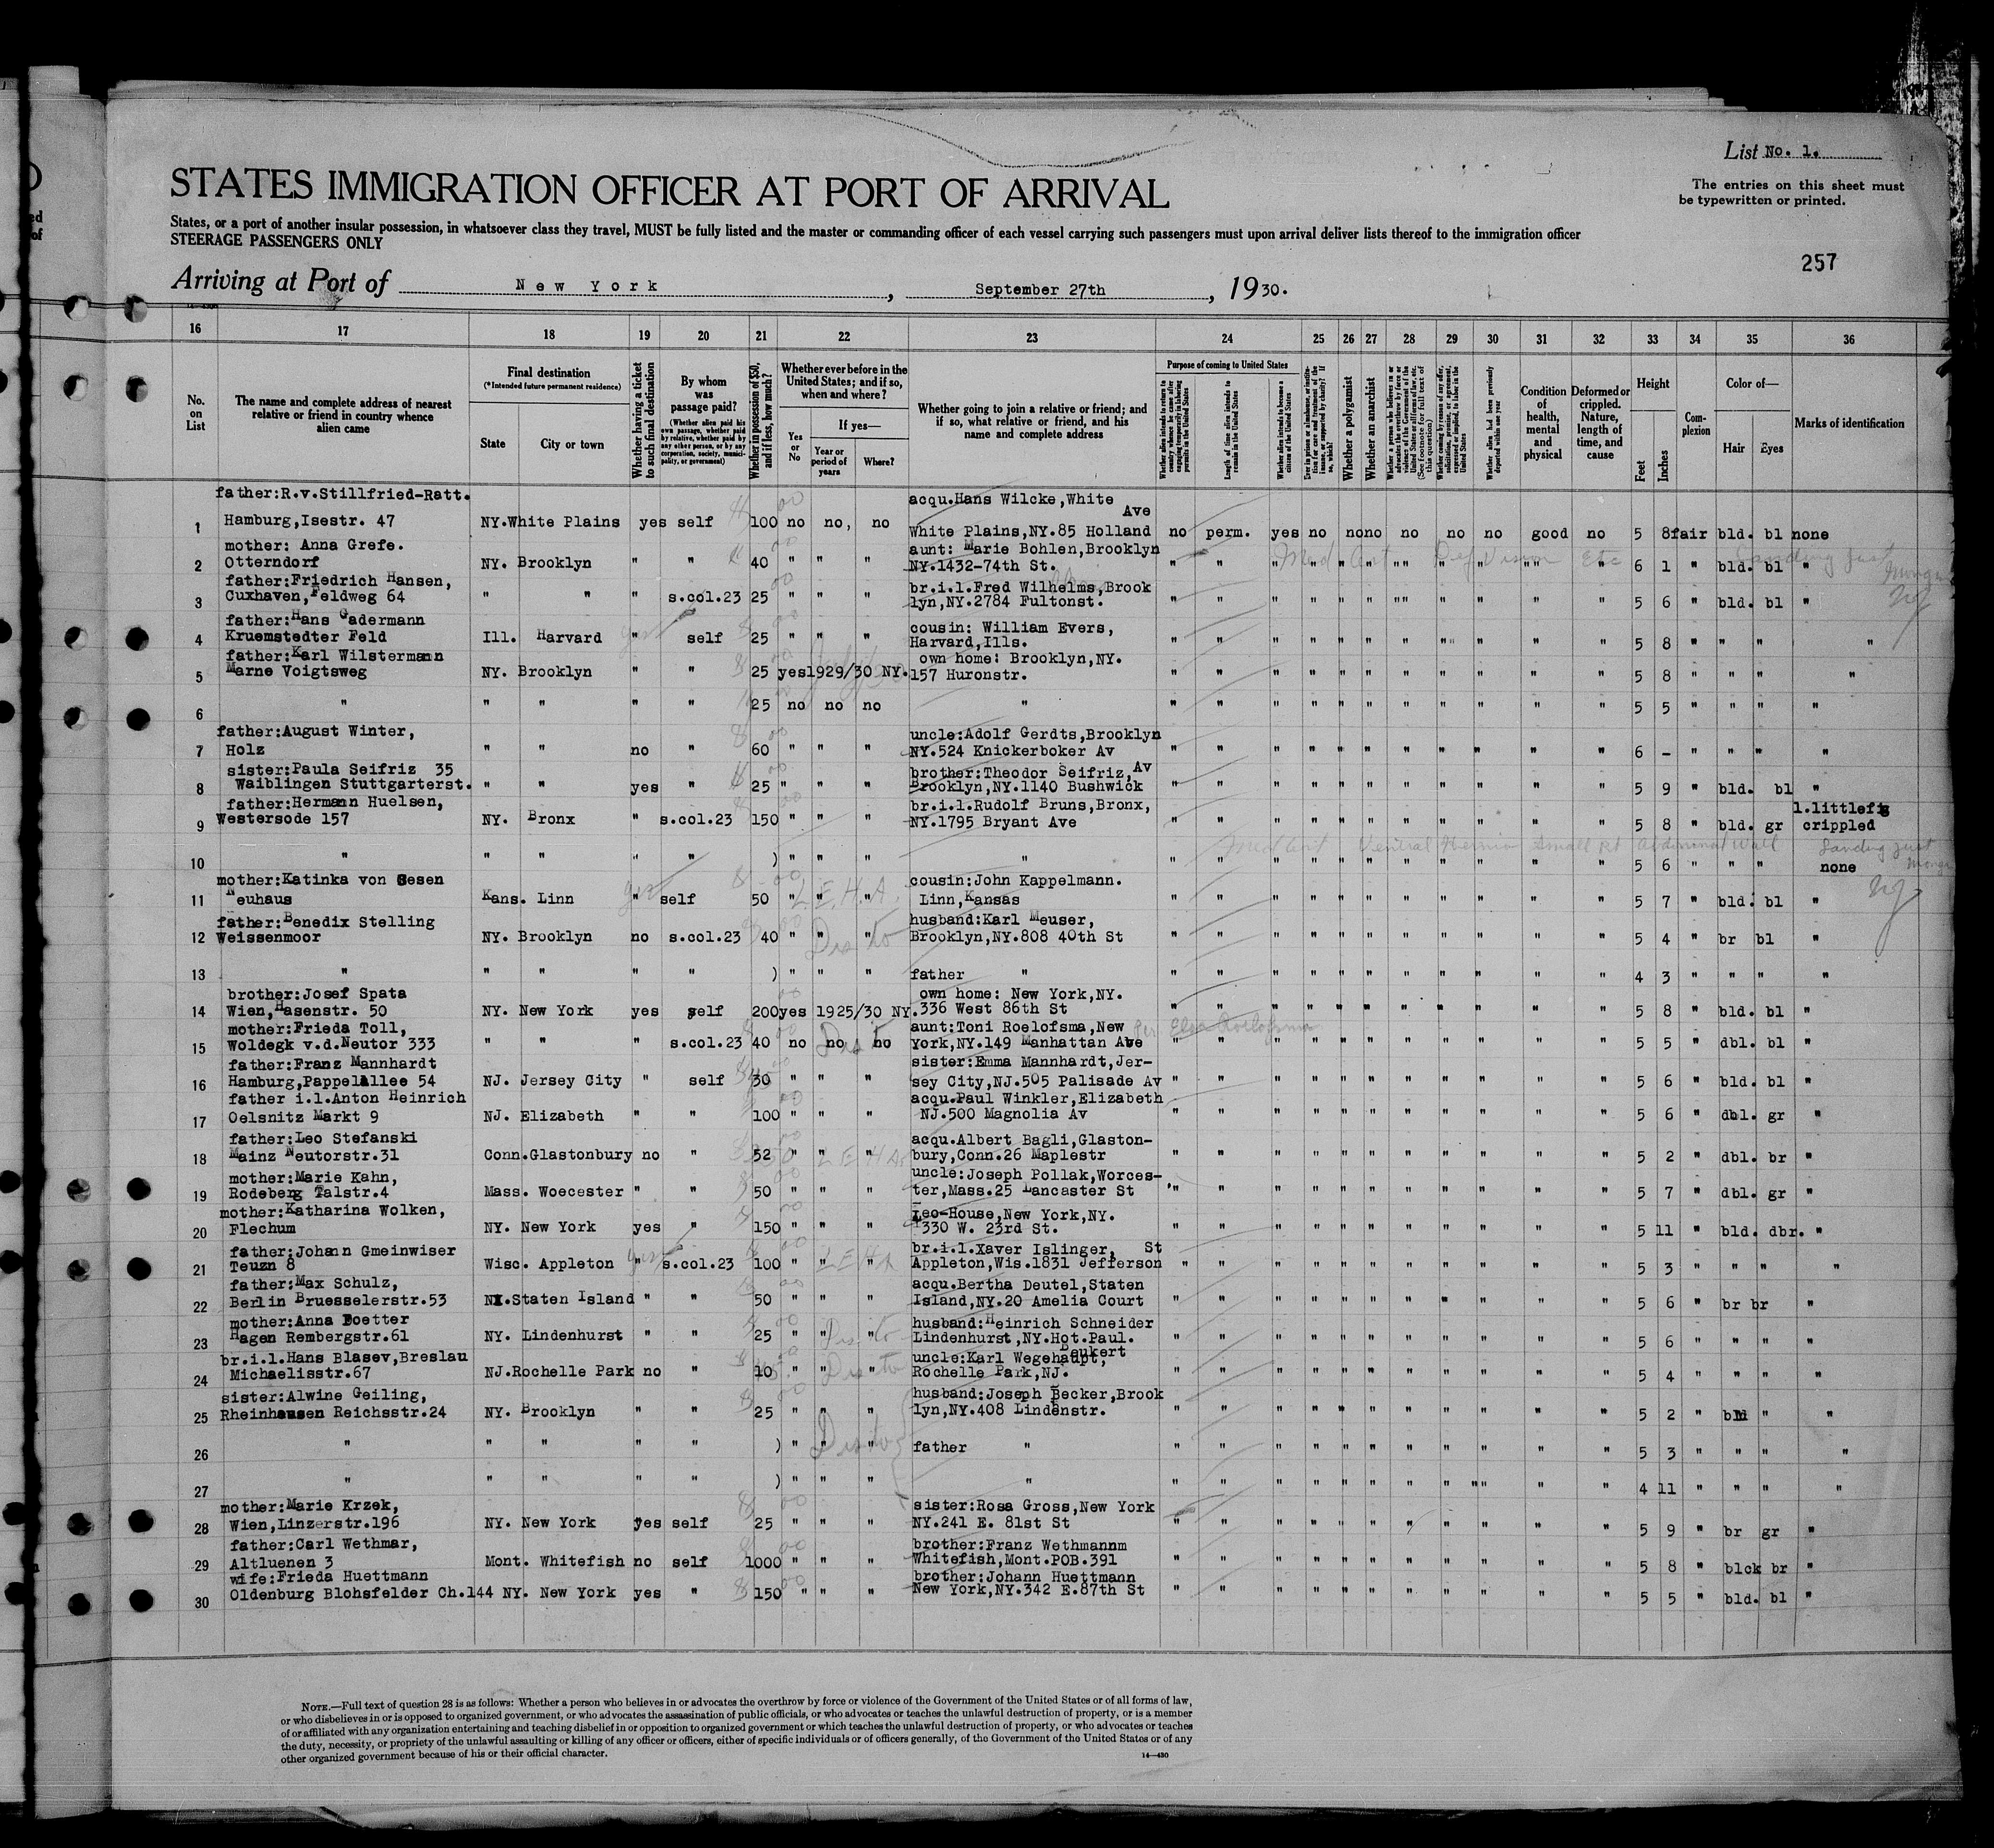 List No. 1.
STATES IMMIGRATION OFFICER AT PORT OF ARRIVAL
The entries on this sheet must
be typewritten or printed.
States, or a port of another insular possession, in whatsoever class they travel, MUST be fully listed and the master or commanding officer of each vessel carrying such passengers must upon arrival deliver lists thereof to the immigration officer
STEERAGE PASSENGERS ONLY
257
Arriving at Port of New York, September 27th, 1930.
16 17 18 19 20 21 22 23 24 25 26 27 28 29 30 31 32 33 34 35 36
No. on List
The name and complete address of nearest relative or friend in country whence alien came
Final destination
(*Intended future permanent residence)
State
City or town
Whether having a ticket to such final destination
By whom was passage paid?
(Whether alien paid his own passage, whether paid by relative, whether paid by any other person, or by any corporation, society, municipality, or government)
Whether in possession of $50, and if less, how much?
Whether ever before in the United States; and if so, when and where?
Yes or No
If yes—
Year or period of years
Where?
Whether going to join a relative or friend; and if so, what relative or friend, and his name and complete address
Purpose of coming to United States
Length of time alien intends to remain in the United States
Whether alien intends to become a citizen of the United States
Whether a polygamist
Whether an anarchist
Condition of health, mental and physical
Deformed or crippled. Nature, length of time, and cause
Height
Feet
Inches
Complexion
Color of—
Hair
Eyes
Marks of identification
father:R.v.Stillfried-Ratt. acqu.Hans Wilcke,White Ave
1 Hamburg,Isestr. 47 NY.White Plains yes self 100 no no, no White Plains,NY.85 Holland no perm. yes no no no no no no good no 5 8 fair bld. bl none
mother: Anna Grefe. aunt: Marie Bohlen,Brooklyn
2 Otterndorf NY. Brooklyn " " 40 " " " NY.1432-74th St. " " " " " " " " " " " 6 1 " bld. bl "
father:Friedrich Hansen, br.i.l.Fred Wilhelms,Brook
3 Cuxhaven,Feldweg 64 " " " s.col.23 25 " " " lyn,NY.2784 Fultonst. " " " " " " " " " " " 5 6 " bld. bl "
father:Hans Gadermann cousin: William Evers,
4 Kruemstedter Feld Ill. Harvard " self 25 " " " Harvard,Ills. " " " " " " " " " " " 5 8 " " " "
father:Karl Wilstermann own home: Brooklyn,NY.
5 Marne Voigtsweg NY. Brooklyn " " 25 yes 1929/30 NY. 157 Huronstr. " " " " " " " " " " " 5 8 " " " "
6 " " " " " 25 no no no " " " " " " " " " " " " 5 5 " " " "
father:August Winter, uncle:Adolf Gerdts,Brooklyn
7 Holz " " no " 60 " " " NY.524 Knickerboker Av " " " " " " " " " " " 6 - " " " "
sister:Paula Seifriz 35 brother:Theodor Seifriz,Av
8 Waiblingen Stuttgarterst. " " yes " 25 " " " Brooklyn,NY.1140 Bushwick " " " " " " " " " " " 5 9 " bld. bl "
father:Hermann Huelsen, br.i.l.Rudolf Bruns,Bronx, l.littlefig
9 Westersode 157 NY. Bronx " s.col.23 150 " " " NY.1795 Bryant Ave " " " " " " " " " " " 5 8 " bld. gr crippled
Med Cert Ventral Hernia Small Rt Abdominal Wall
10 " " " " " ) " " " " " " " " " " " " " " " 5 6 " " " none
mother:Katinka von Gesen cousin:John Kappelmann.
11 Neuhaus Kans. Linn " self 50 " " " Linn,Kansas " " " " " " " " " " " 5 7 " bld. bl "
father:Benedix Stelling husband:Karl Meuser,
12 Weissenmoor NY. Brooklyn no s.col.23 40 " " " Brooklyn,NY.808 40th St " " " " " " " " " " " 5 4 " br bl "
13 " " " " " ) " " " father " " " " " " " " " " " " 4 3 " " " "
brother:Josef Spata own home: New York,NY.
14 Wien,Hasenstr. 50 NY. New York yes self 200 yes 1925/30 NY. 336 West 86th St " " " " " " " " " " " 5 8 " bld. bl "
mother:Frieda Toll, aunt:Toni Roelofsma,New
15 Woldegk v.d.Neutor 333 " " " s.col.23 40 no no no York,NY.149 Manhattan Ave " " " " " " " " " " " 5 5 " dbl. bl "
father:Franz Mannhardt sister:Emma Mannhardt,Jer-
16 Hamburg,Pappelallee 54 NJ. Jersey City " self 30 " " " sey City,NJ.505 Palisade Av " " " " " " " " " " " 5 6 " bld. bl "
father i.l.Anton Heinrich acqu.Paul Winkler,Elizabeth
17 Oelsnitz Markt 9 NJ. Elizabeth " " 100 " " " NJ.500 Magnolia Av " " " " " " " " " " " 5 6 " dbl. gr "
father:Leo Stefanski acqu.Albert Bagli,Glaston-
18 Mainz Neutorstr.31 Conn.Glastonbury no " 52 " " " bury,Conn.26 Maplestr " " " " " " " " " " " 5 2 " dbl. br "
mother:Marie Kahn, uncle:Joseph Pollak,Worces-
19 Rodeberg Talstr.4 Mass. Woecester " " 50 " " " ter,Mass.25 Lancaster St " " " " " " " " " " " 5 7 " dbl. gr "
mother:Katharina Wolken, Leo-House,New York,NY.
20 Flechum NY. New York yes " 150 " " " 330 W. 23rd St. " " " " " " " " " " " 5 11 " bld. dbr. "
father:Johann Gmeinwiser br.i.l.Xaver Islinger, St
21 Teuzn 8 Wisc. Appleton " s.col.23 100 " " " Appleton,Wis.1831 Jefferson " " " " " " " " " " " 5 3 " " " "
father:Max Schulz, acqu.Bertha Deutel,Staten
22 Berlin Bruesselerstr.53 NY.Staten Island " " 50 " " " Island,NY.20 Amelia Court " " " " " " " " " " " 5 6 " br br "
mother:Anna Poetter husband:Heinrich Schneider
23 Hagen Rembergstr.61 NY. Lindenhurst " " 25 " " " Lindenhurst,NY.Hot.Paul. " " " " " " " " " " " 5 6 " " " "
br.i.l.Hans Blasev,Breslau uncle:Karl Wegehaupt, Beukert
24 Michaelisstr.67 NJ.Rochelle Park no " 10 " " " Rochelle Park,NJ. " " " " " " " " " " " 5 4 " " " "
sister:Alwine Geiling, husband:Joseph Becker,Brook
25 Rheinhausen Reichsstr.24 NY. Brooklyn " " 25 " " " lyn,NY.408 Lindenstr. " " " " " " " " " " " 5 2 " bld " "
26 " " " " " ) " " " father " " " " " " " " " " " " 5 3 " " " "
27 " " " " " ) " " " " " " " " " " " " " " " 4 11 " " " "
mother:Marie Krzek, sister:Rosa Gross,New York
28 Wien,Linzerstr.196 NY. New York yes self 25 " " " NY.241 E. 81st St " " " " " " " " " " " 5 9 " br gr "
father:Carl Wethmar, brother:Franz Wethmannm
29 Altluenen 3 Mont. Whitefish no self 1000 " " " Whitefish,Mont.POB.391 " " " " " " " " " " " 5 8 " blck br "
wife:Frieda Huettmann brother:Johann Huettmann
30 Oldenburg Blohsfelder Ch.144 NY. New York yes " 150 " " " New York,NY.342 E.87th St " " " " " " " " " " " 5 5 " bld. bl "
NOTE.—Full text of question 28 is as follows: Whether a person who believes in or advocates the overthrow by force or violence of the Government of the United States or of all forms of law,
or who disbelieves in or is opposed to organized government, or who advocates the assassination of public officials, or who advocates or teaches the unlawful destruction of property, or is a member
of or affiliated with any organization entertaining and teaching disbelief in or opposition to organized government or which teaches the unlawful destruction of property, or who advocates or teaches
the duty, necessity, or propriety of the unlawful assaulting or killing of any officer or officers, either of specific individuals or of officers generally, of the Government of the United States or of any
other organized government because of his or their official character.
14—430